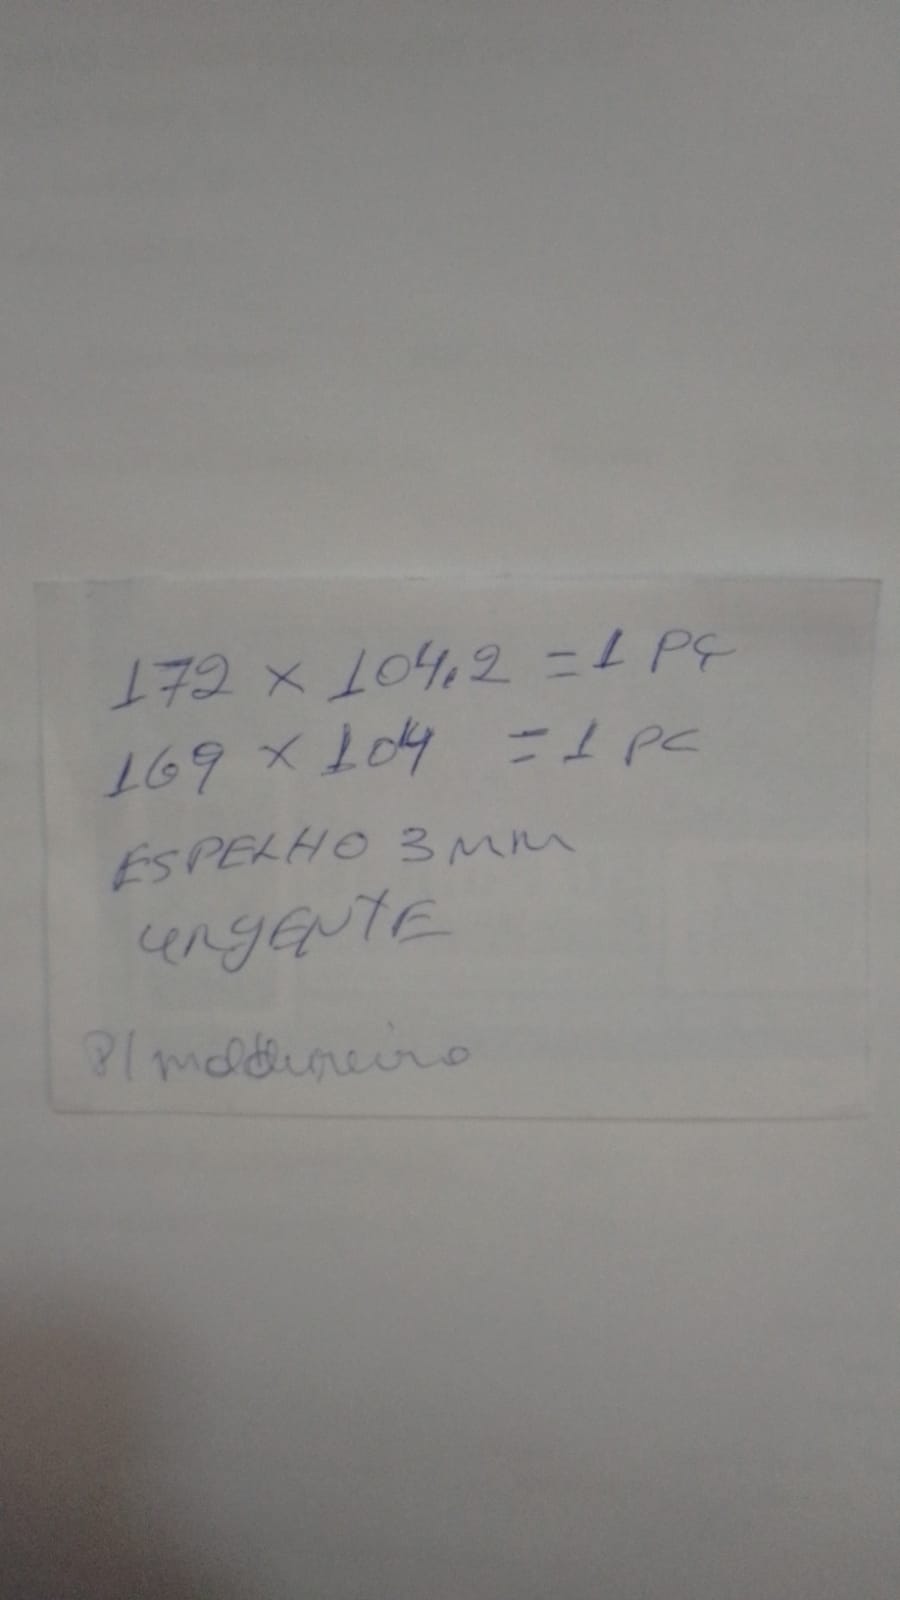 172 x 104,2 = 1 PÇ
169 x 104 = 1 PC
ESPELHO 3 MM
URGENTE
P/ moldureiro